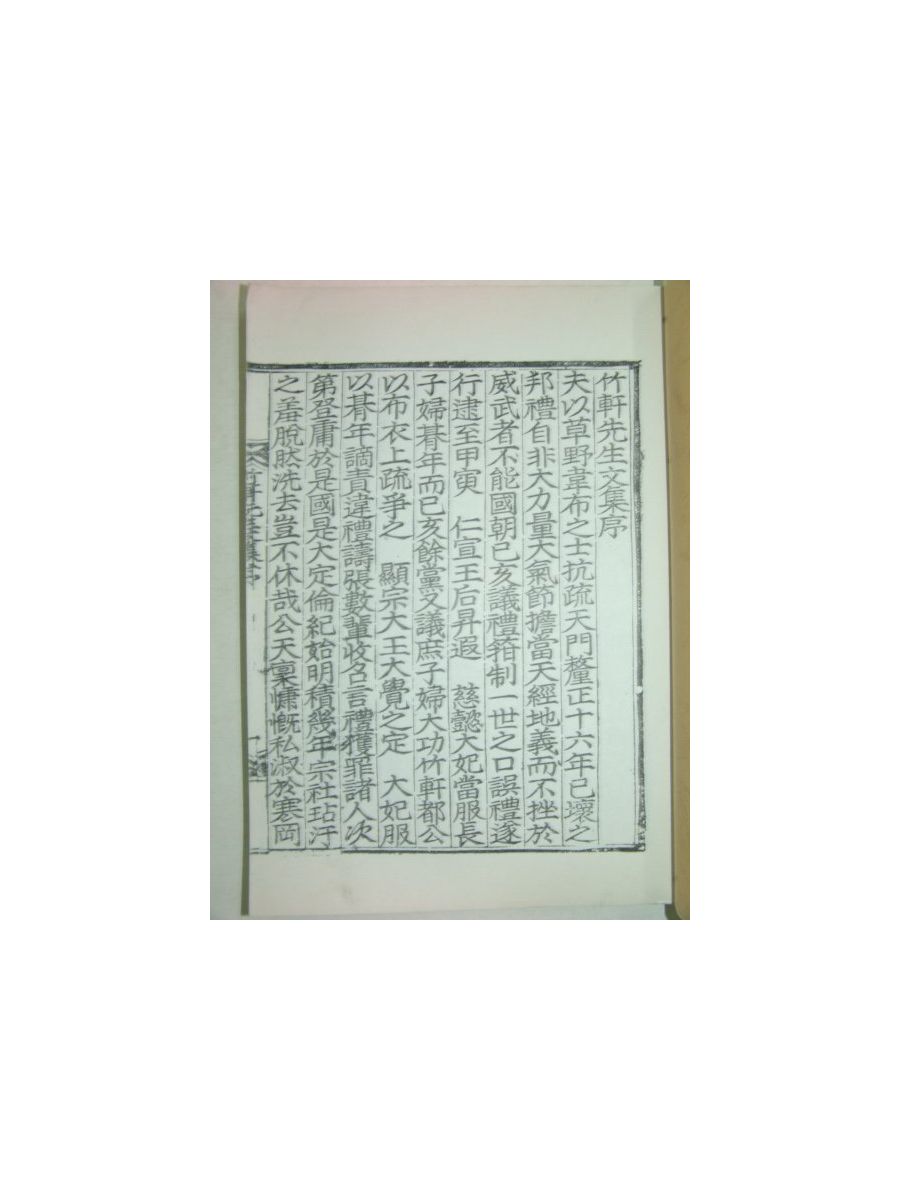 竹軒先生文集序
夫以草野韋布之士抗疏天門釐正十六年已壞之
邦禮自非大力量大氣節擔當天經地義而不挫於
威武者不能國朝已亥議禮箝制一世之口誤禮遂
行逮至甲寅 仁宣王后昇遐 慈懿大妃當服長
子婦朞年而已亥餘黨又議庶子婦大功竹軒都公
以布衣上疏爭之 顯宗大王大覺之定 大妃服
以朞年謫責違禮譸張數輩收召言禮獲罪諸人次
第登庸於是國是大定倫紀始明積幾年宗社玷汙
之羞脫然洗去豈不休哉公天稟慷慨私淑於寒岡